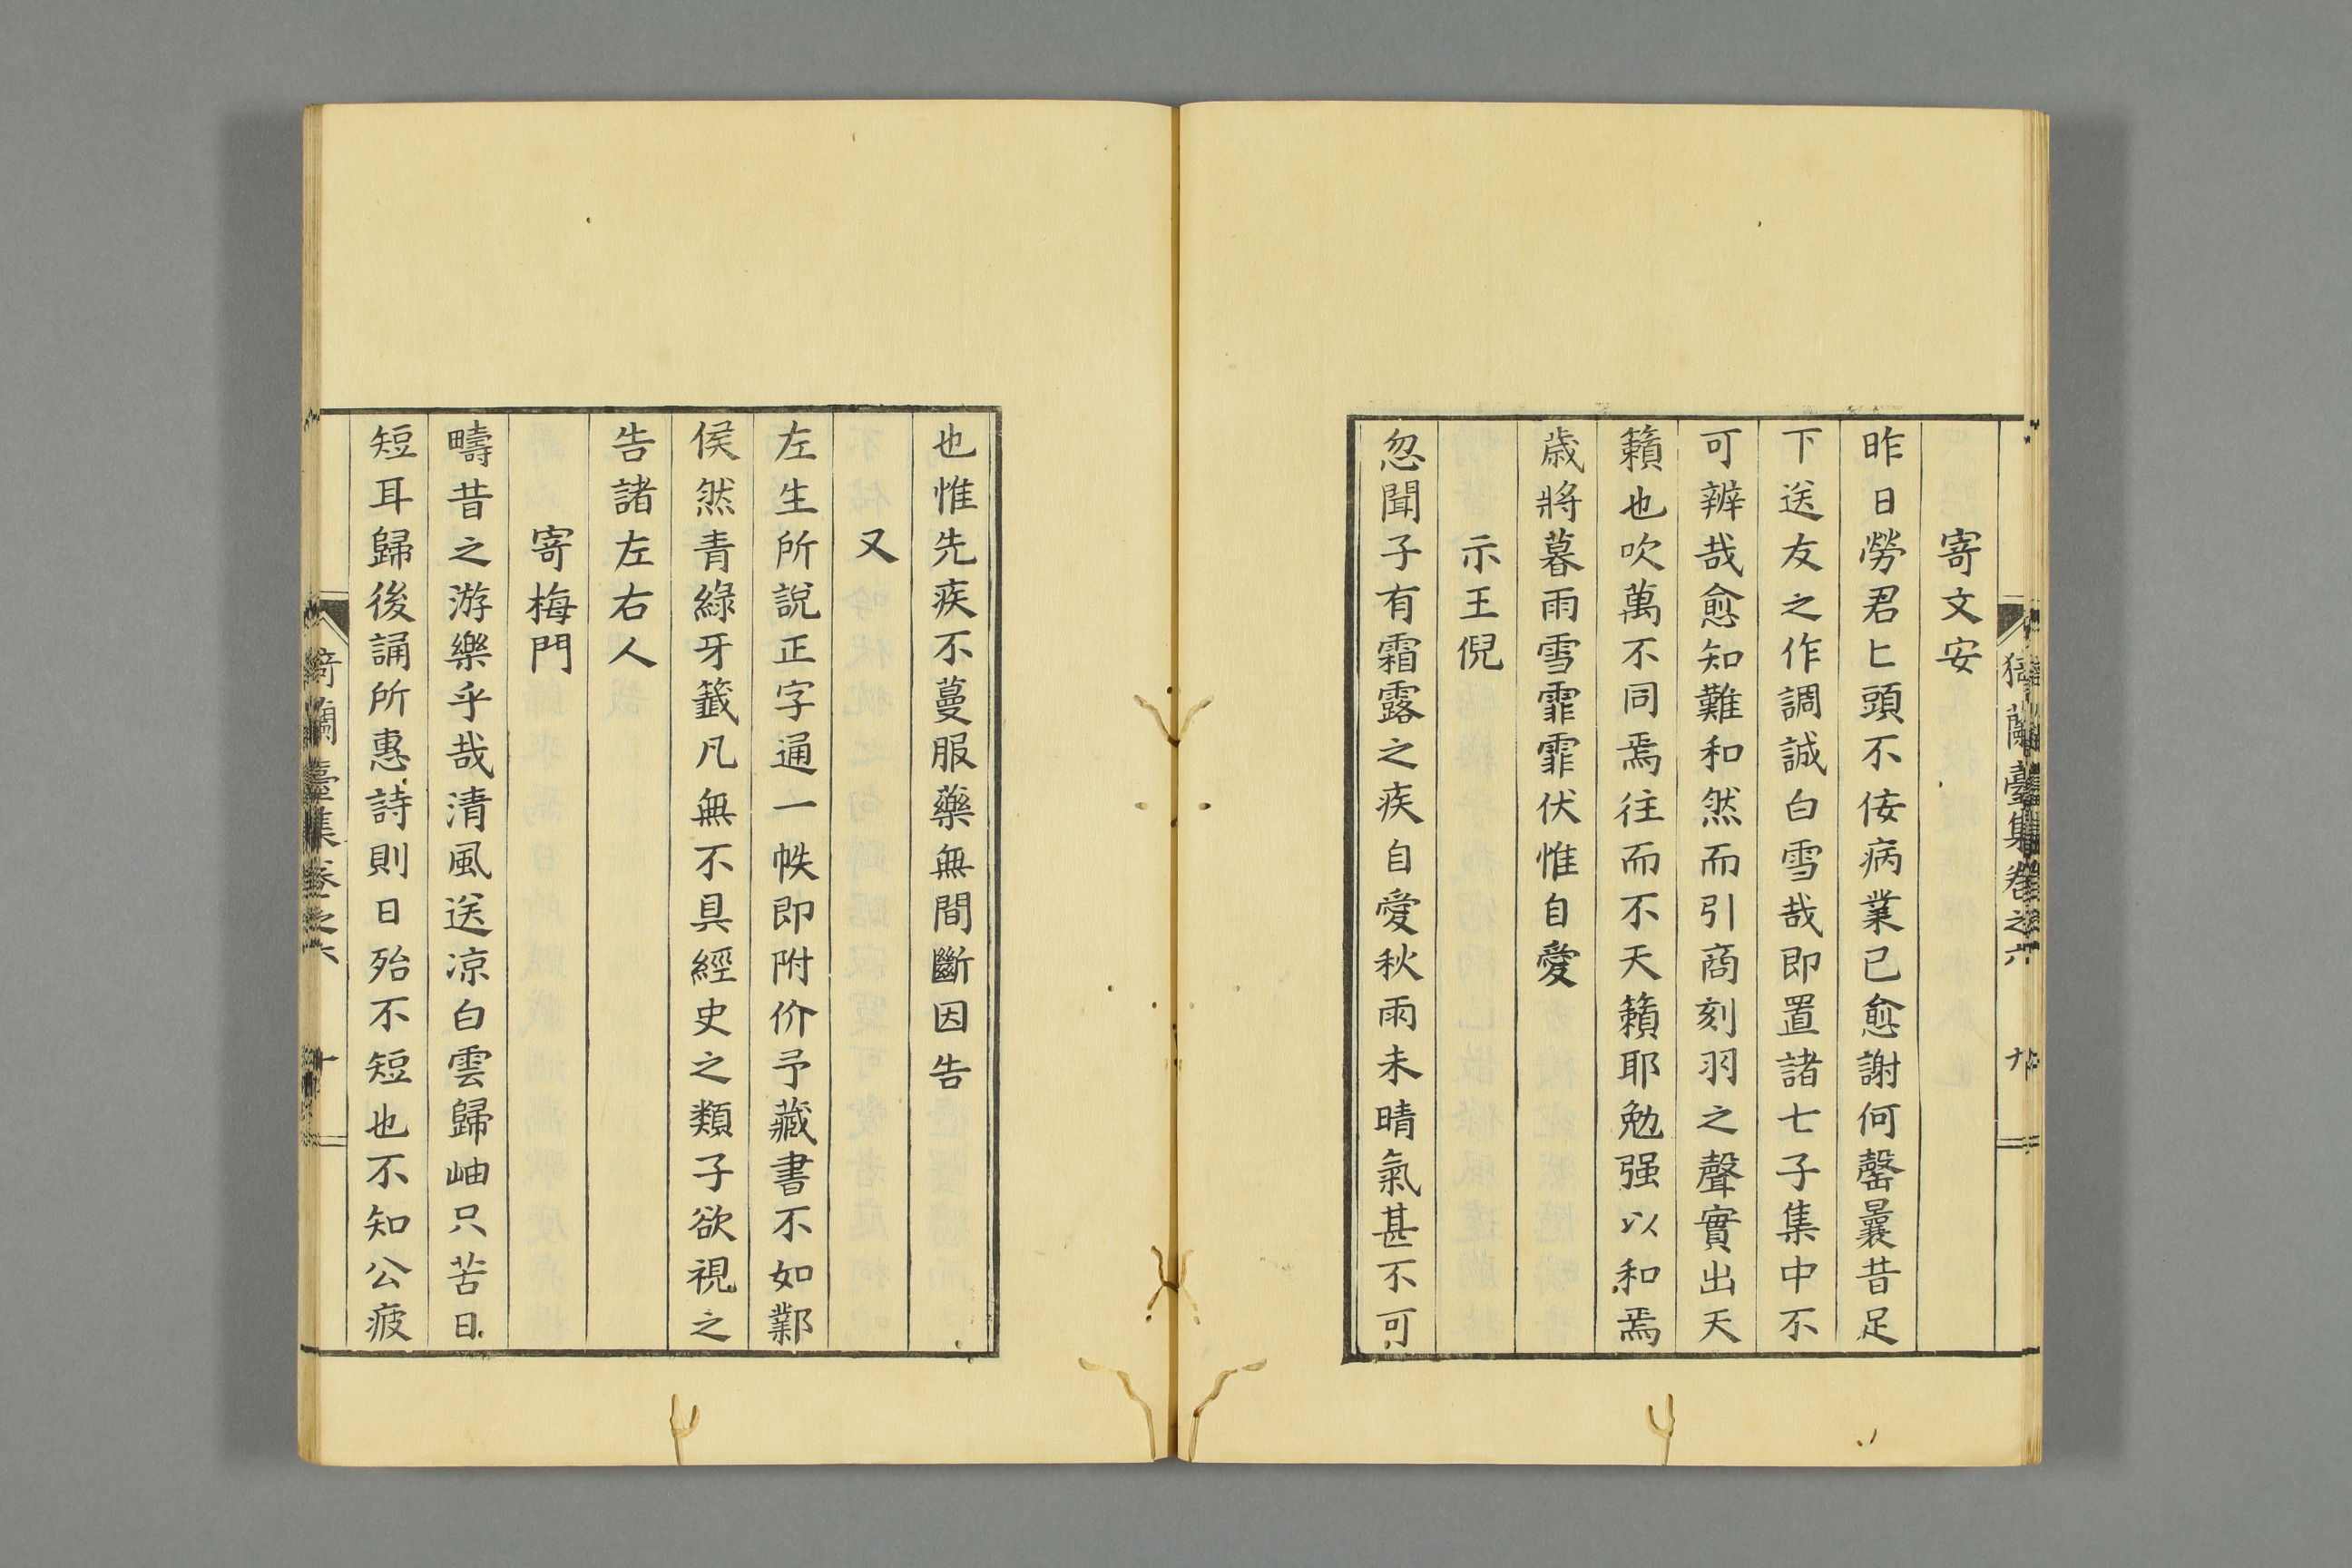 寄文安
昨日勞君匕頭不佞病業已愈謝何罄曩昔足
下送友之作調誠白雪哉即置諸七子集中不
可辨哉愈知難和然而引商刻羽之聲實出天
籟也吹萬不同焉往而不天籟耶勉强以和焉
歳將暮雨雪霏霏伏惟自愛
示王倪
忽聞子有霜露之疾自愛秋雨未晴氣甚不可
也惟先疾不蔓服藥無間斷因告
又
左生所說正字通一帙即附价予藏書不如鄴
侯然青綠牙籤凡無不具經史之類子欲視之
告諸左右人
寄梅門
疇昔之游樂乎哉清風送凉白雲歸岫只苦日
短耳歸後誦所惠詩則日殆不短也不知公疲
猗蘭臺集卷之六
九
猗蘭臺集卷之六
十